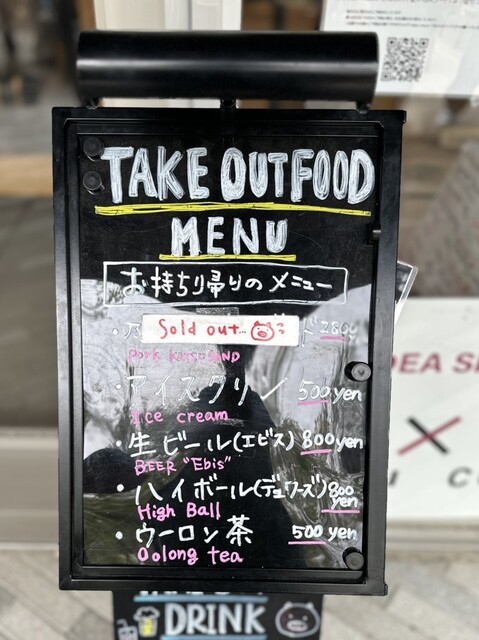 TAKE OUTFOOD
MENU
お持ち帰りのメニュー
Sold out...
ド 2800
Pork Katsu SAND
・アイスクリン 500yen
Ice cream
・生ビール(エビス) 800yen
BEER "Ebis"
・ハイボール(デュワーズ) 800 yen
High Ball
・ウーロン茶 500 yen
Oolong tea
DRINK
DEA S